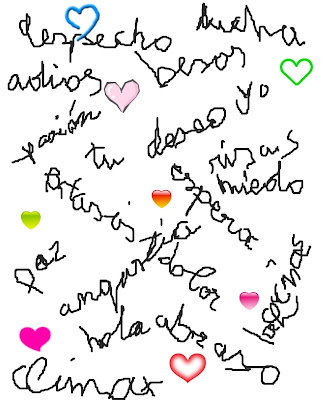 despecho lucha
besos
adios
yo
pasión
deseo
tu
risas
miedo
extasis
espera
paz
angustia
dolor
hola abrazo
Climax